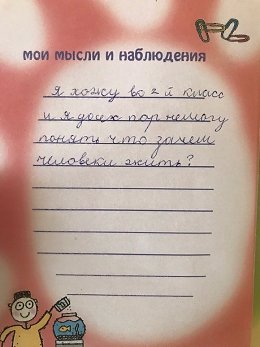 мои мысли и наблюдения
Я хожу во 2 й класс
и я досех пор немогу
понять что зачем
человеки жить?